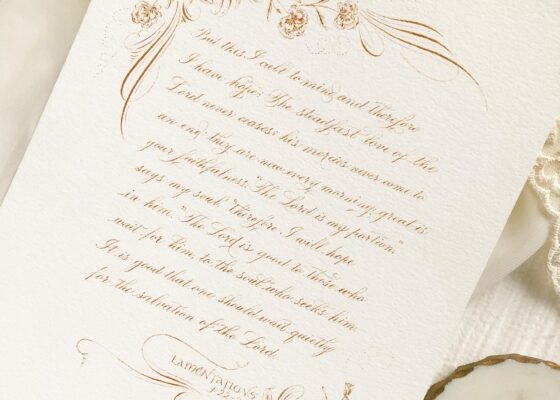 But this I call to mind, and therefore
I have hope: The steadfast love of the
Lord never ceases; his mercies never come to
an end; they are new every morning; great is
your faithfulness. "The Lord is my portion,"
says my soul, "therefore I will hope
in him." The Lord is good to those who
wait for him, to the soul who seeks him.
It is good that one should wait quietly
for the salvation of the Lord.
LAMENTATIONS